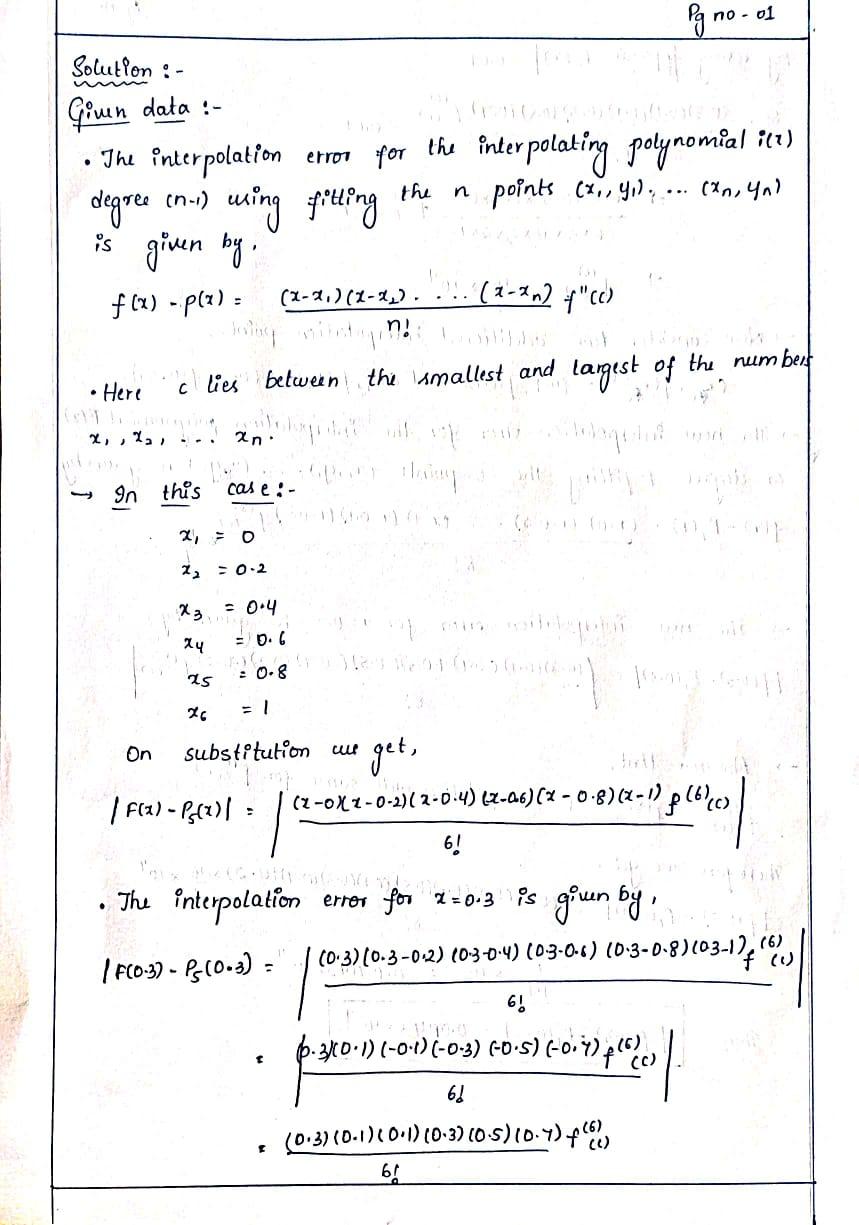 Pg no - 01
Solution :-
Given data :-
• The interpolation error for the interpolating polynomial i(x)
degree (n-1) using fitting the n points (x₁, y₁), ... (xn, yn)
is given by.
f(x) - p(x) = (x-x₁)(x-x₂). . ... (x-xn) f"(c)
n!
• Here c lies between the smallest and largest of the numbers
x₁, x₂, ... xn.
→ In this case :-
x₁ = 0
x₂ = 0.2
x₃ = 0.4
x₄ = 0.6
x₅ = 0.8
x₆ = 1
On substitution we get,
|F(x) - P₅(x)| = |(x-0)(x-0.2)(x-0.4)(x-0.6)(x-0.8)(x-1) f⁽⁶⁾(c)|
6!
• The interpolation error for x=0.3 is given by,
|F(0.3) - P₅(0.3) = |(0.3)(0.3-0.2)(0.3-0.4)(0.3-0.6)(0.3-0.8)(0.3-1) f⁽⁶⁾(c)|
6!
= |0.3)(0.1)(-0.1)(-0.3)(-0.5)(-0.7) f⁽⁶⁾(c)|
6!
= (0.3)(0.1)(0.1)(0.3)(0.5)(0.7) f⁽⁶⁾(c)
6!